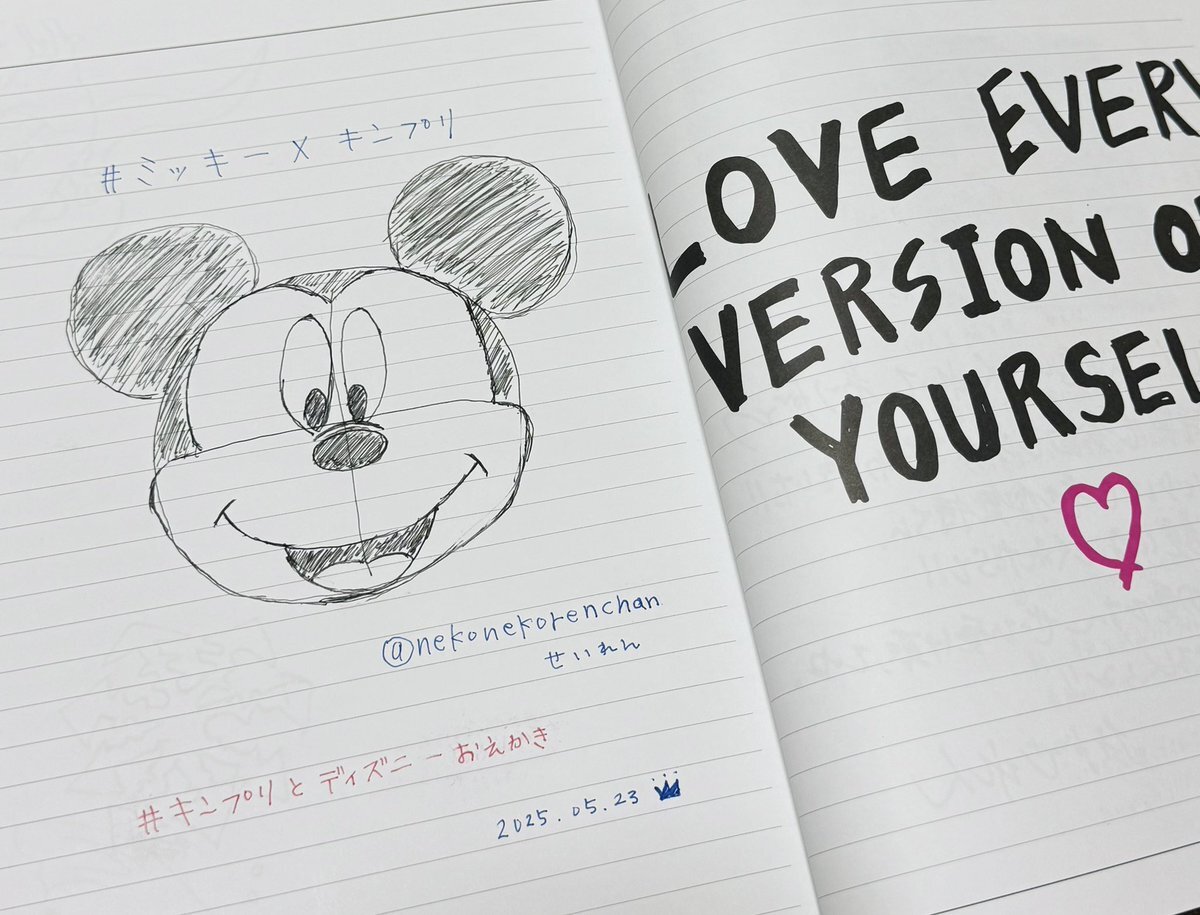 #ミッキー×キンプリ
@nekonekorenchan
せいれん
#キンプリとディズニーおえかき
2025.05.23
LOVE EVERY
VERSION OF
YOURSEL